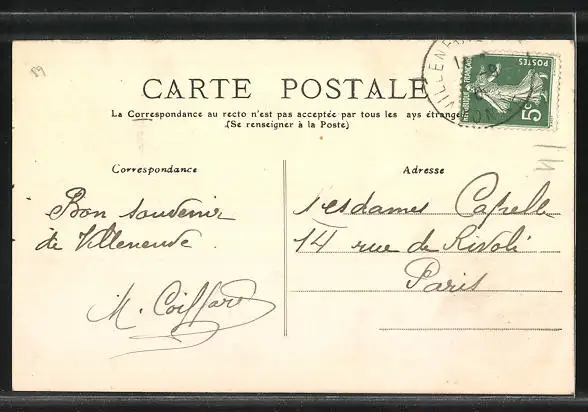 89
VILLENEU
CARTE POSTALE
POSTES
RÉPUBLIQUE FRANÇAISE
5c
La Correspondance au recto n'est pas acceptée par tous les ays étrange
(Se renseigner à la Poste)
Correspondance
Bon souvenir
de Villeneuve.
M. Coiffard
Adresse
Mesdames Capelle
14 rue de Rivoli
Paris